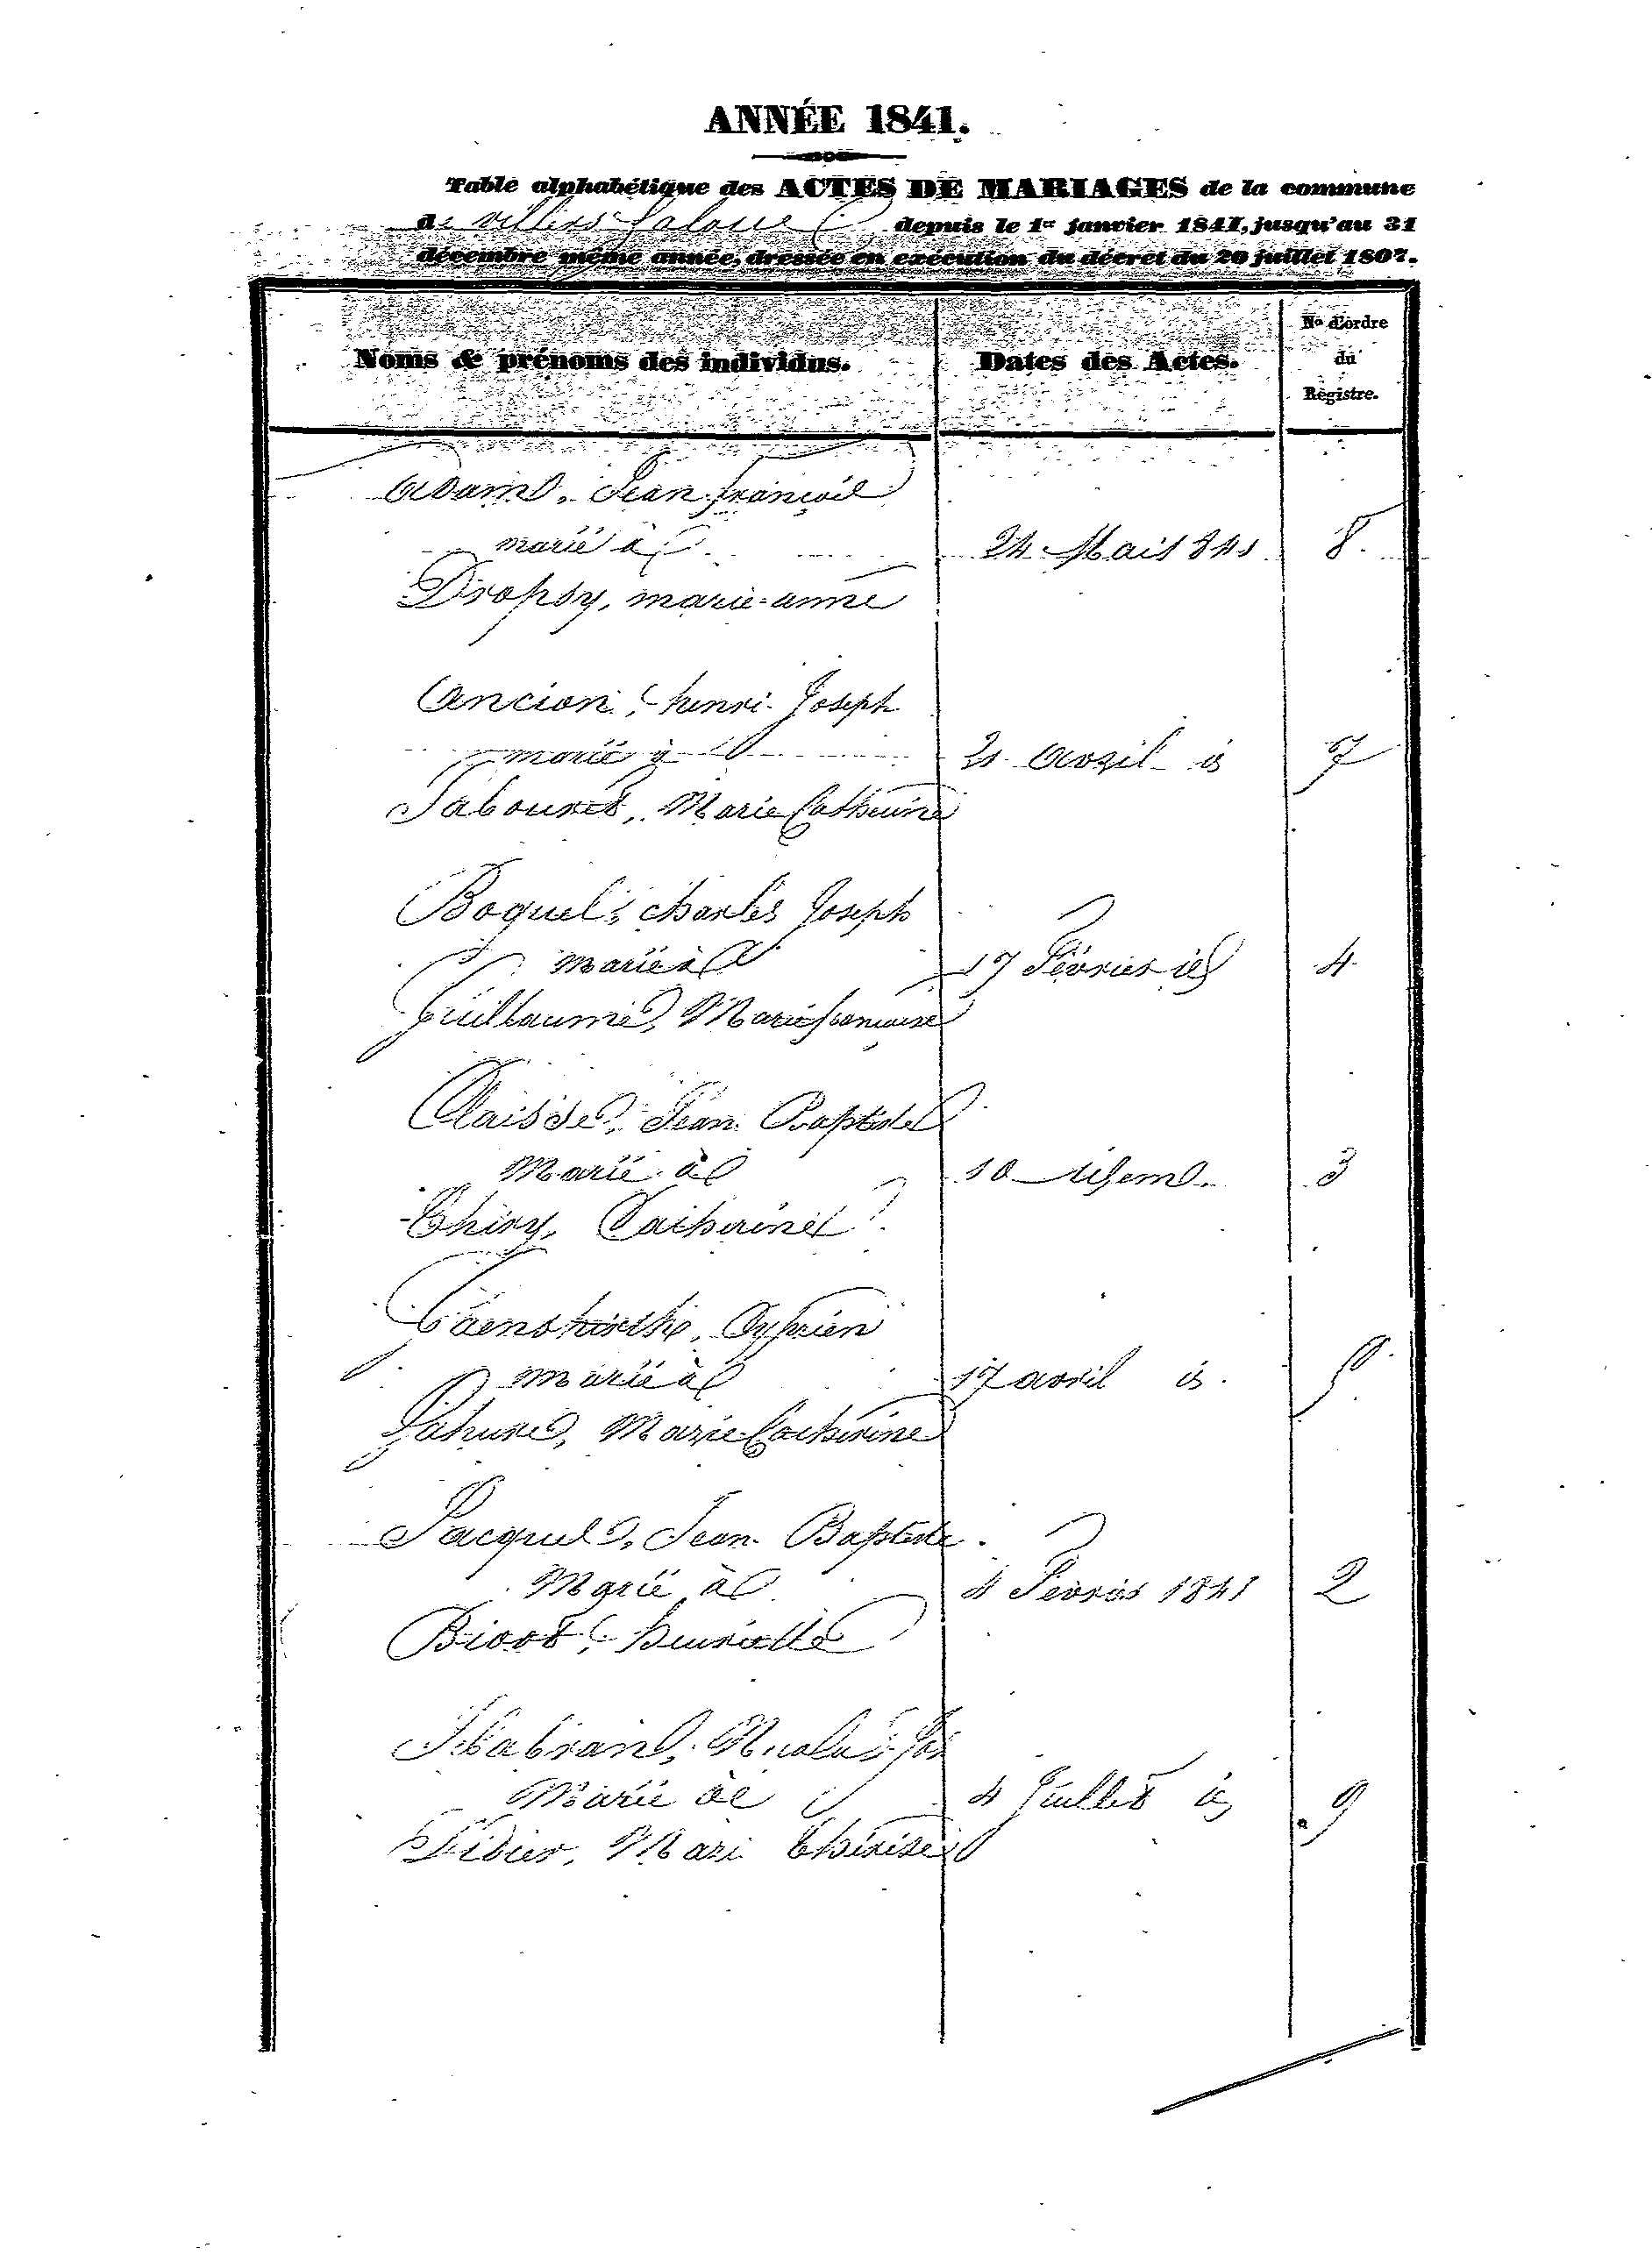 ANNÉE 1841.
Table alphabétique des ACTES DE MARIAGES de la commune
de villers la loue depuis le 1er janvier 1841, jusqu'au 31
décembre même année, dressée en exécution du décret du 20 juillet 1807.
Noms & prénoms des individus. Dates des Actes. No d'ordre du Régistre.
Adam, Jean françois
marié à 24 Mai 1841 8.
Dropsy, marie-anne
Ancion, henri Joseph
marié à 21 avril id 7
Jabouret, Marie Catherine
Boquel, charles Joseph
marié à 17 Février id 4
Guillaume, Marie françoise
Claisse, Jean Baptiste
Marié à 10 idem. 3
Thiry, Catherine
Cyprien
marié à 17 avril id.
Lahure, Marie Catherine
Jacque, Jean Baptiste
Marié à 4 Février 1841 2
Biort, henriette
Nicolas Jos
Marié à 4 Juillet id 9
Didier, Mari Thérèse